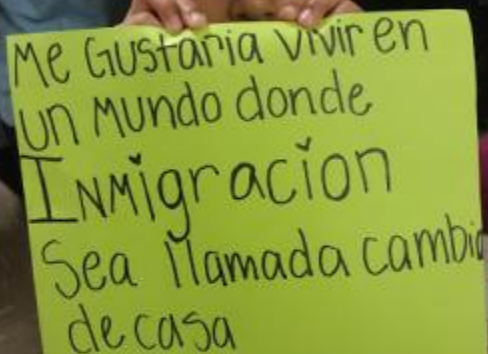 Me Gustaria vivir en
un Mundo donde
INMigracion
Sea llamada cambio
de casa